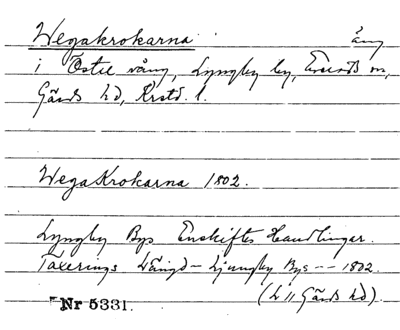 Wegakrokarna. äng
i Östre vång, Lyngby by, Everöds sn,
Gärds hd, Krstd. l.
WegaKrokarna 1802.
Lyngby Bys Enskiftes Handlingar.
Taxerings Längd - Ljungby Bys -- 1802.
(L 11 Gärds hd)
Nr 5331.